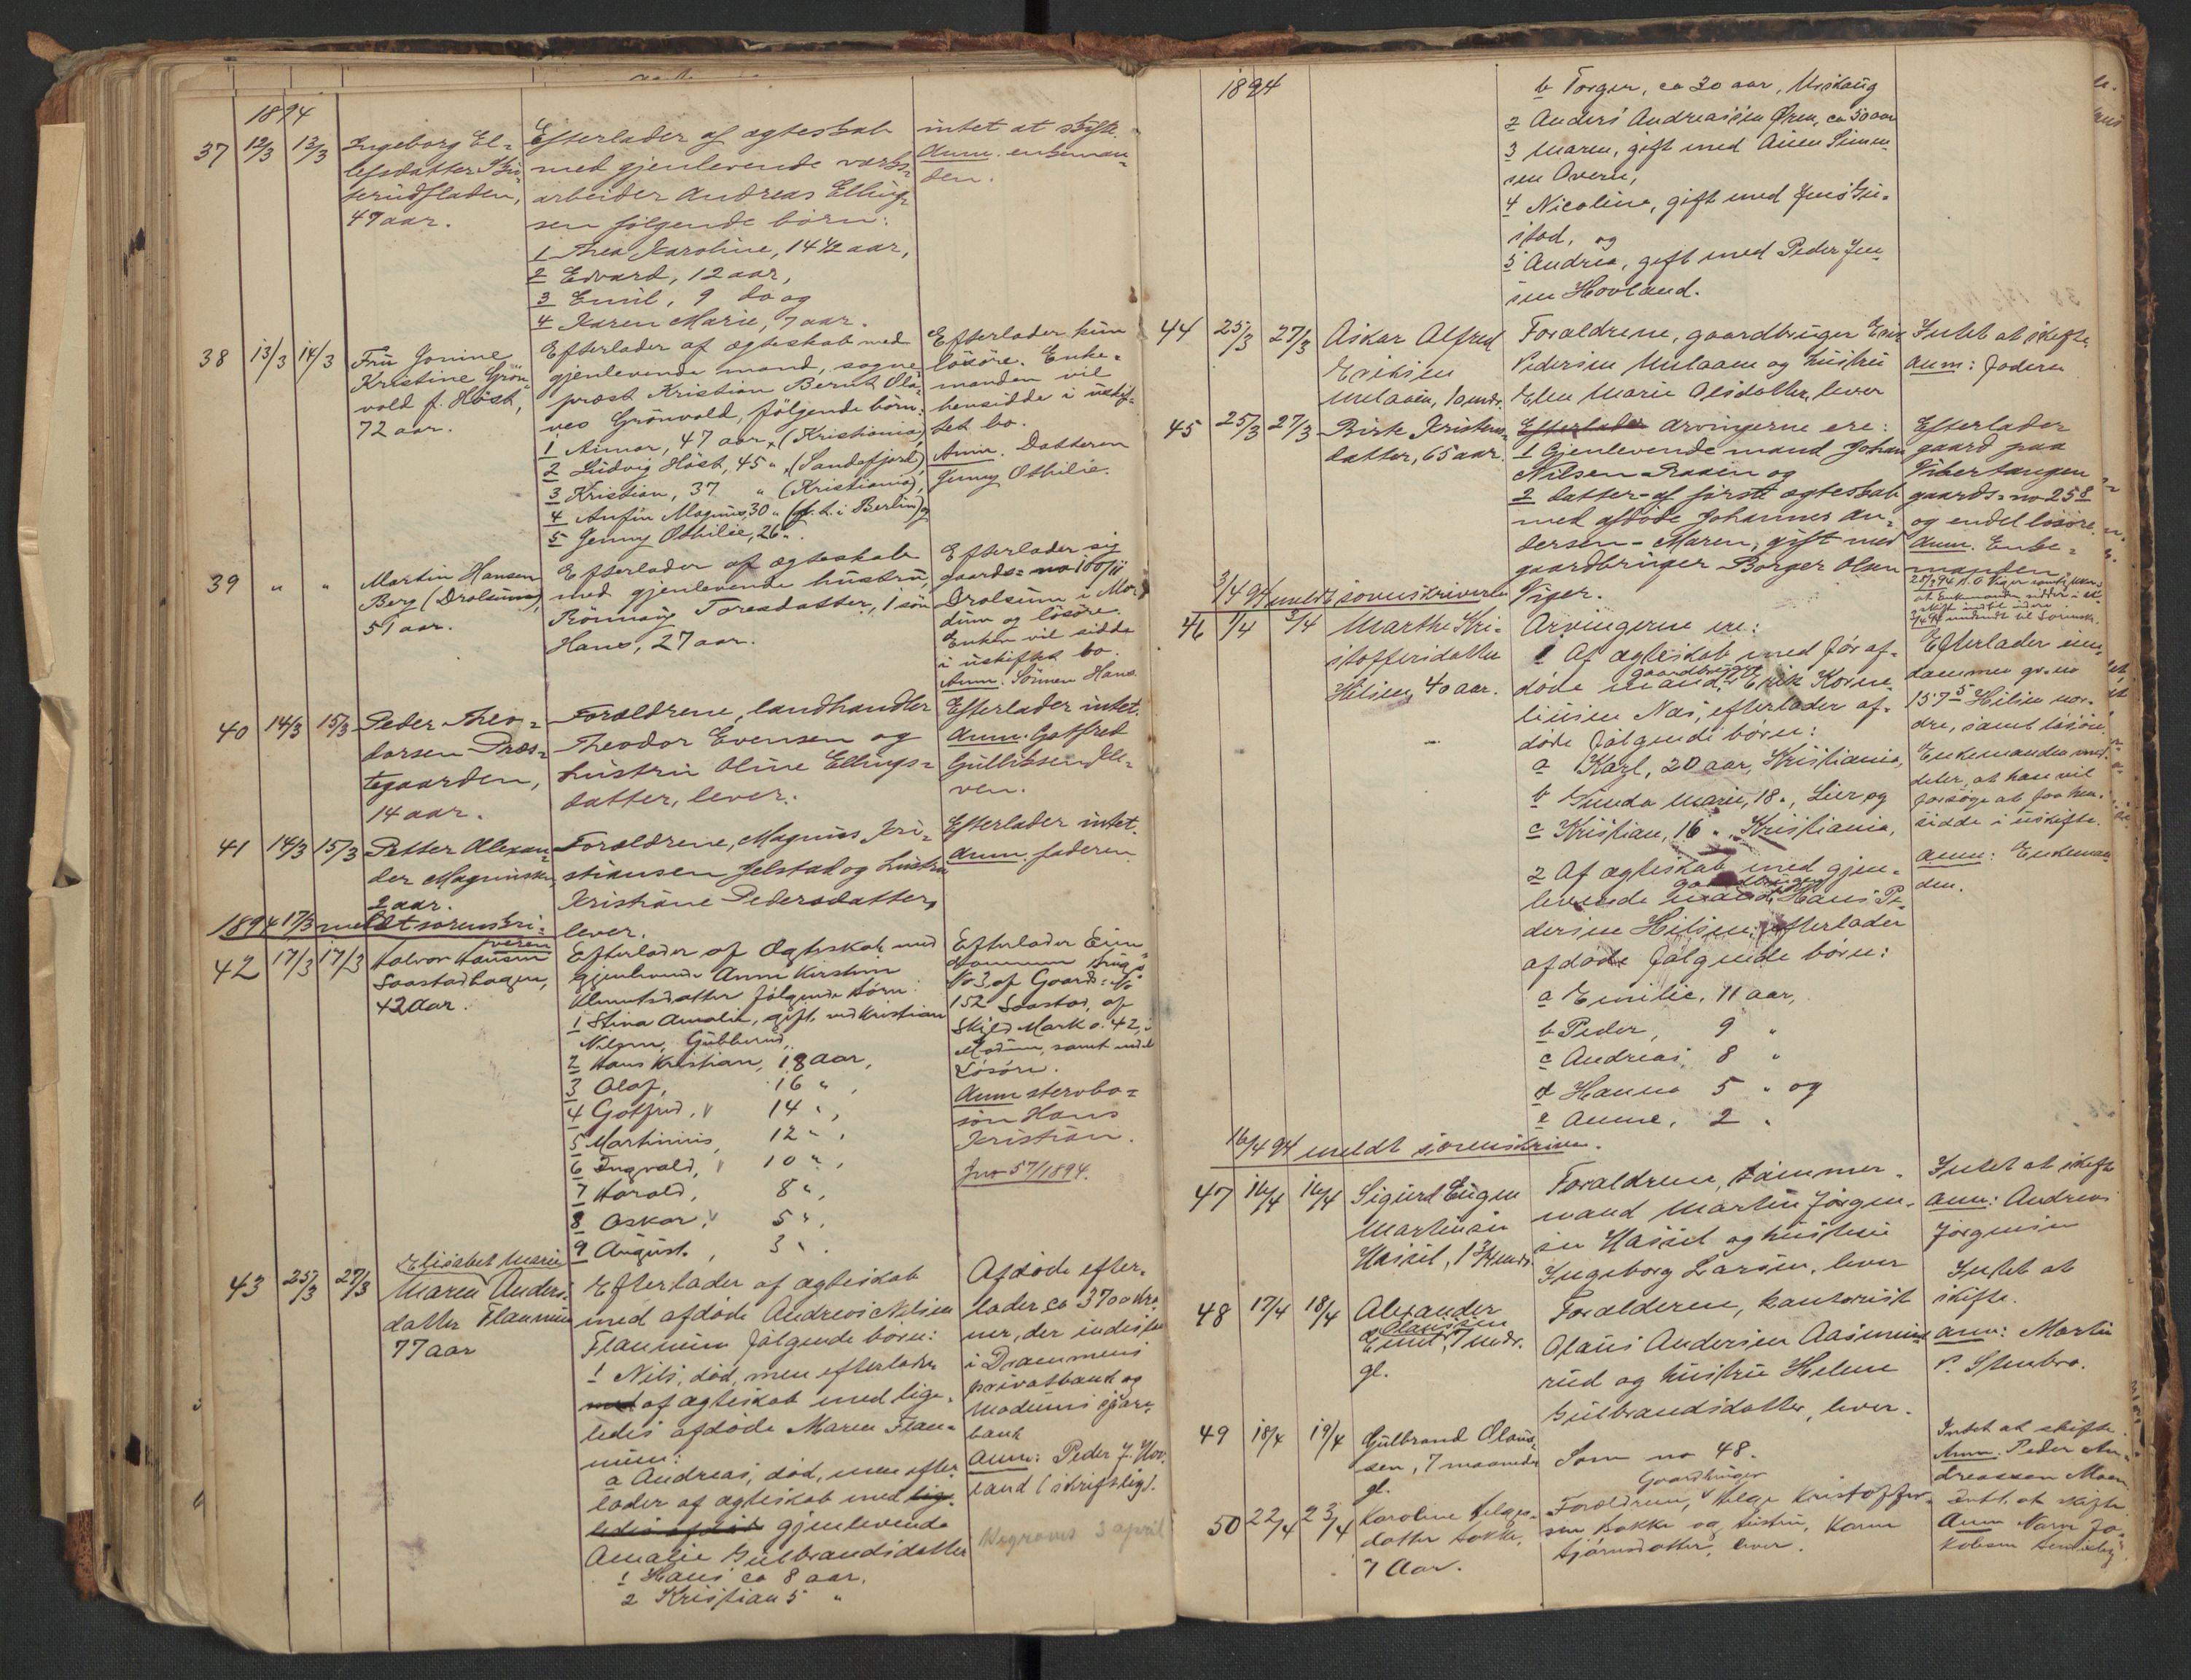 1894
37 12/3 13/3 Ingeborg El-
lefsdatter
rudfladen,
49 aar.
Efterlader af ægteskab
med gjenlevende
arbeider Andreas Elling-
sen følgende børn:
1 Thea Karoline, 14 1/2 aar,
2 Edvard, 12 aar,
3 Emil, 9 do og
4 Karen Marie, 7 aar.
intet at skifte.
Anm. enkeman-
den.
38 13/3 14/3 Fru Jonine
Kristine Grøn-
vold f. Høst,
72 aar.
Efterlader af ægteskab med
gjenlevende mand, sogne-
præst Kristian Bernt Ola-
veo Grønvold, følgende børn:
1 Aimar, 47 aar, (Kristiania)
2 Ludvig Høst, 45 " (Sandefjord),
3 Kristian, 37 " (Kristiania),
4 Anfin Magnus, 30 " (f. t. i Berlin) og
5 Jenny Othilie, 26 ".
Efterlader kun
løsøre. Enke-
manden vil
hensidde i uskif-
tet bo.
Anm. Datteren
Jenny Othilie.
39 " " Martin Hansen
Berg (Drolsum),
51 aar.
Efterlader af ægteskab
med gjenlevende hustru,
Rønnaug Toresdatter, 1 søn
Hans, 27 aar.
Efterlader sig
gaards-no 100/11
Drolsum i Mo-
dum og løsøre.
Enken vil sidde
i uskiftet bo.
Anm. Sønnen Hans.
40 14/3 15/3 Peder Theo-
dorsen Præs-
tegaarden,
14 aar.
Forældrene, landhandler
Theodor Evensen og
hustru Oline Ellings-
datter, lever.
Efterlader intet.
Anm. Gotfred
Gulliksen
ven.
41 14/3 15/3 Petter Alexan-
der Magnussen,
2 aar.
Forældrene, Magnus Kri-
stiansen Jelstad og hustru
Kristiane Pedersdatter,
lever.
Efterlader intet.
Anm. faderen.
1894 17/3 meldt sorenskri-
veren
42 17/3 17/3 Halvor Hansen
Saastadhagen,
42 Aar.
Efterlader af Ægteskab med
gjenlevende Anne Kirstine
Klemetsdatter følgende Børn:
1 Stina Amalie, gift med Kristian
Nilsen, Gubberud,
2 Hans Kristian, 18 Aar,
3 Olaf, 16 ",
4 Gotfred, 14 ",
5 Martinius, 12 ",
6 Ingvald, 10 ",
7 Harald, 8 ",
8 Oskar, 5 ",
9 August, 3 ".
Efterlader Eien-
dommen Brugs-
No 3 af Gaards-No
152 Saastad, af
Skyld Mark 0.42, i
Modum, samt endel
Løsøre.
Anm stervbo-
søn Hans
Kristian.
Jno 57/1894.
43 25/3 27/3 Elisabet Marie
Maren Anders-
datter Flannum
77 aar
Efterlader af ægteskab
med afdøde Andreas Nilsen
Flannum følgende børn:
1 Nils, død, men efterlader
med af ægteskab med lige-
ledes afdøde Maren Flan-
num:
a Andreas, død, men efter-
lader af ægteskab med lige-
ledes afdøde gjenlevende
Amalie Gulbrandsdatter
1 Hans ca 8 aar,
2 Kristian 5 "
Afdøde efter-
lader ca 3700 kro-
ner, der indestaar
i Drammens
privatbank og
Modums spare-
bank
Anm: Peder J. Hov-
land (skriftlig).
Begraves 3 april
1894
b Torger, ca 30 aar,
2 Anders Andreassen Øren, ca 50 aar
3 Maren, gift med Simen-
sen Overn,
4 Nicoline, gift med Jens
stad, og
5 Andrea, gift med Peder Jen-
sen Hovland.
44 25/3 27/3 Askar Alfred
Eriksen
Mulaaen, 10 mdr.
Forældrene, gaardbruger Erik
Pedersen Mulaaen og hustru
Elen Marie Olsdatter, lever
Intet at skifte.
Anm: faderen
45 25/3 27/3 Birte Kristens-
datter, 65 aar.
Efterlader Arvingerne ere:
1 Gjenlevende mand Johan
Nilsen Raaen og
2 datter af første ægteskab
med afdøde Johannes An-
dersen - Maren, gift med
gaardbruger Borger Olsen
Viger.
Efterlader
gaard paa
gaards-no 258
og endel løsøre.
Anm. Enke-
manden.
3/4 94 meldt sorenskriveren
46 1/4 2/4 Marthe Kri-
stoffersdatter
Hilsen, 40 aar.
Arvingerne ere:
1 Af ægteskab med før af-
døde mand, gaardbruger Erik Korne-
liusen Næs, efterlader af-
døde følgende børn:
a Karl, 20 aar, Kristiania,
b Gunda Marie, 18 ", Lier og
c Kristian, 16 ", Kristiania,
2 Af ægteskab med gjen-
levende mand, gaardbruger Hans Pe-
dersen Hilsen, efterlader
afdøde følgende børn:
a Emilie, 11 aar,
b Peder, 9 "
c Andreas, 8 "
d Hanna 5 " og
e Anne, 2 "
Efterlader eien-
dommen gr.no
157 5 Hilsen nor-
dre, samt løsøre.
Enkemanden med-
deler, at han vil
forsøge at faa hen-
sidde i uskifte.
Anm: Enkeman-
den.
16/4 94 meldt sorenskriver.
47 16/4 16/4 Sigurd Eugen
Martinsen
Hassel, 1 3/4 mdr.
Forældrene, tømmer-
mand Martin Jørgen-
sen Hassel og hustru
Ingeborg Larsen, lever
Intet at skifte
Anm: Andreas
Jørgensen
48 17/4 18/4 Alexander
Olaussen
Emil, 7 mdr.
gl.
Forælderen, kantorist
Olaus Andersen Aasmund-
rud og hustru Helene
Gulbrandsdatter, lever.
Intet at
skifte.
Anm: Martin
P. Stenbro.
49 18/4 19/4 Gulbrand Olaus-
sen, 7 maaneder
gl.
Som no 48.
Intet at skifte.
Anm. Peder An-
dreassen Moen
50 22/4 23/4 Karoline Helges-
datter Bakke,
7 Aar.
Forældrene, Gaardbruger Helge Kristoffer-
sen Bakke og Hustru, Karen
Bjørnsdatter, lever.
Intet at skifte
Anm Narve Ja-
kobsen